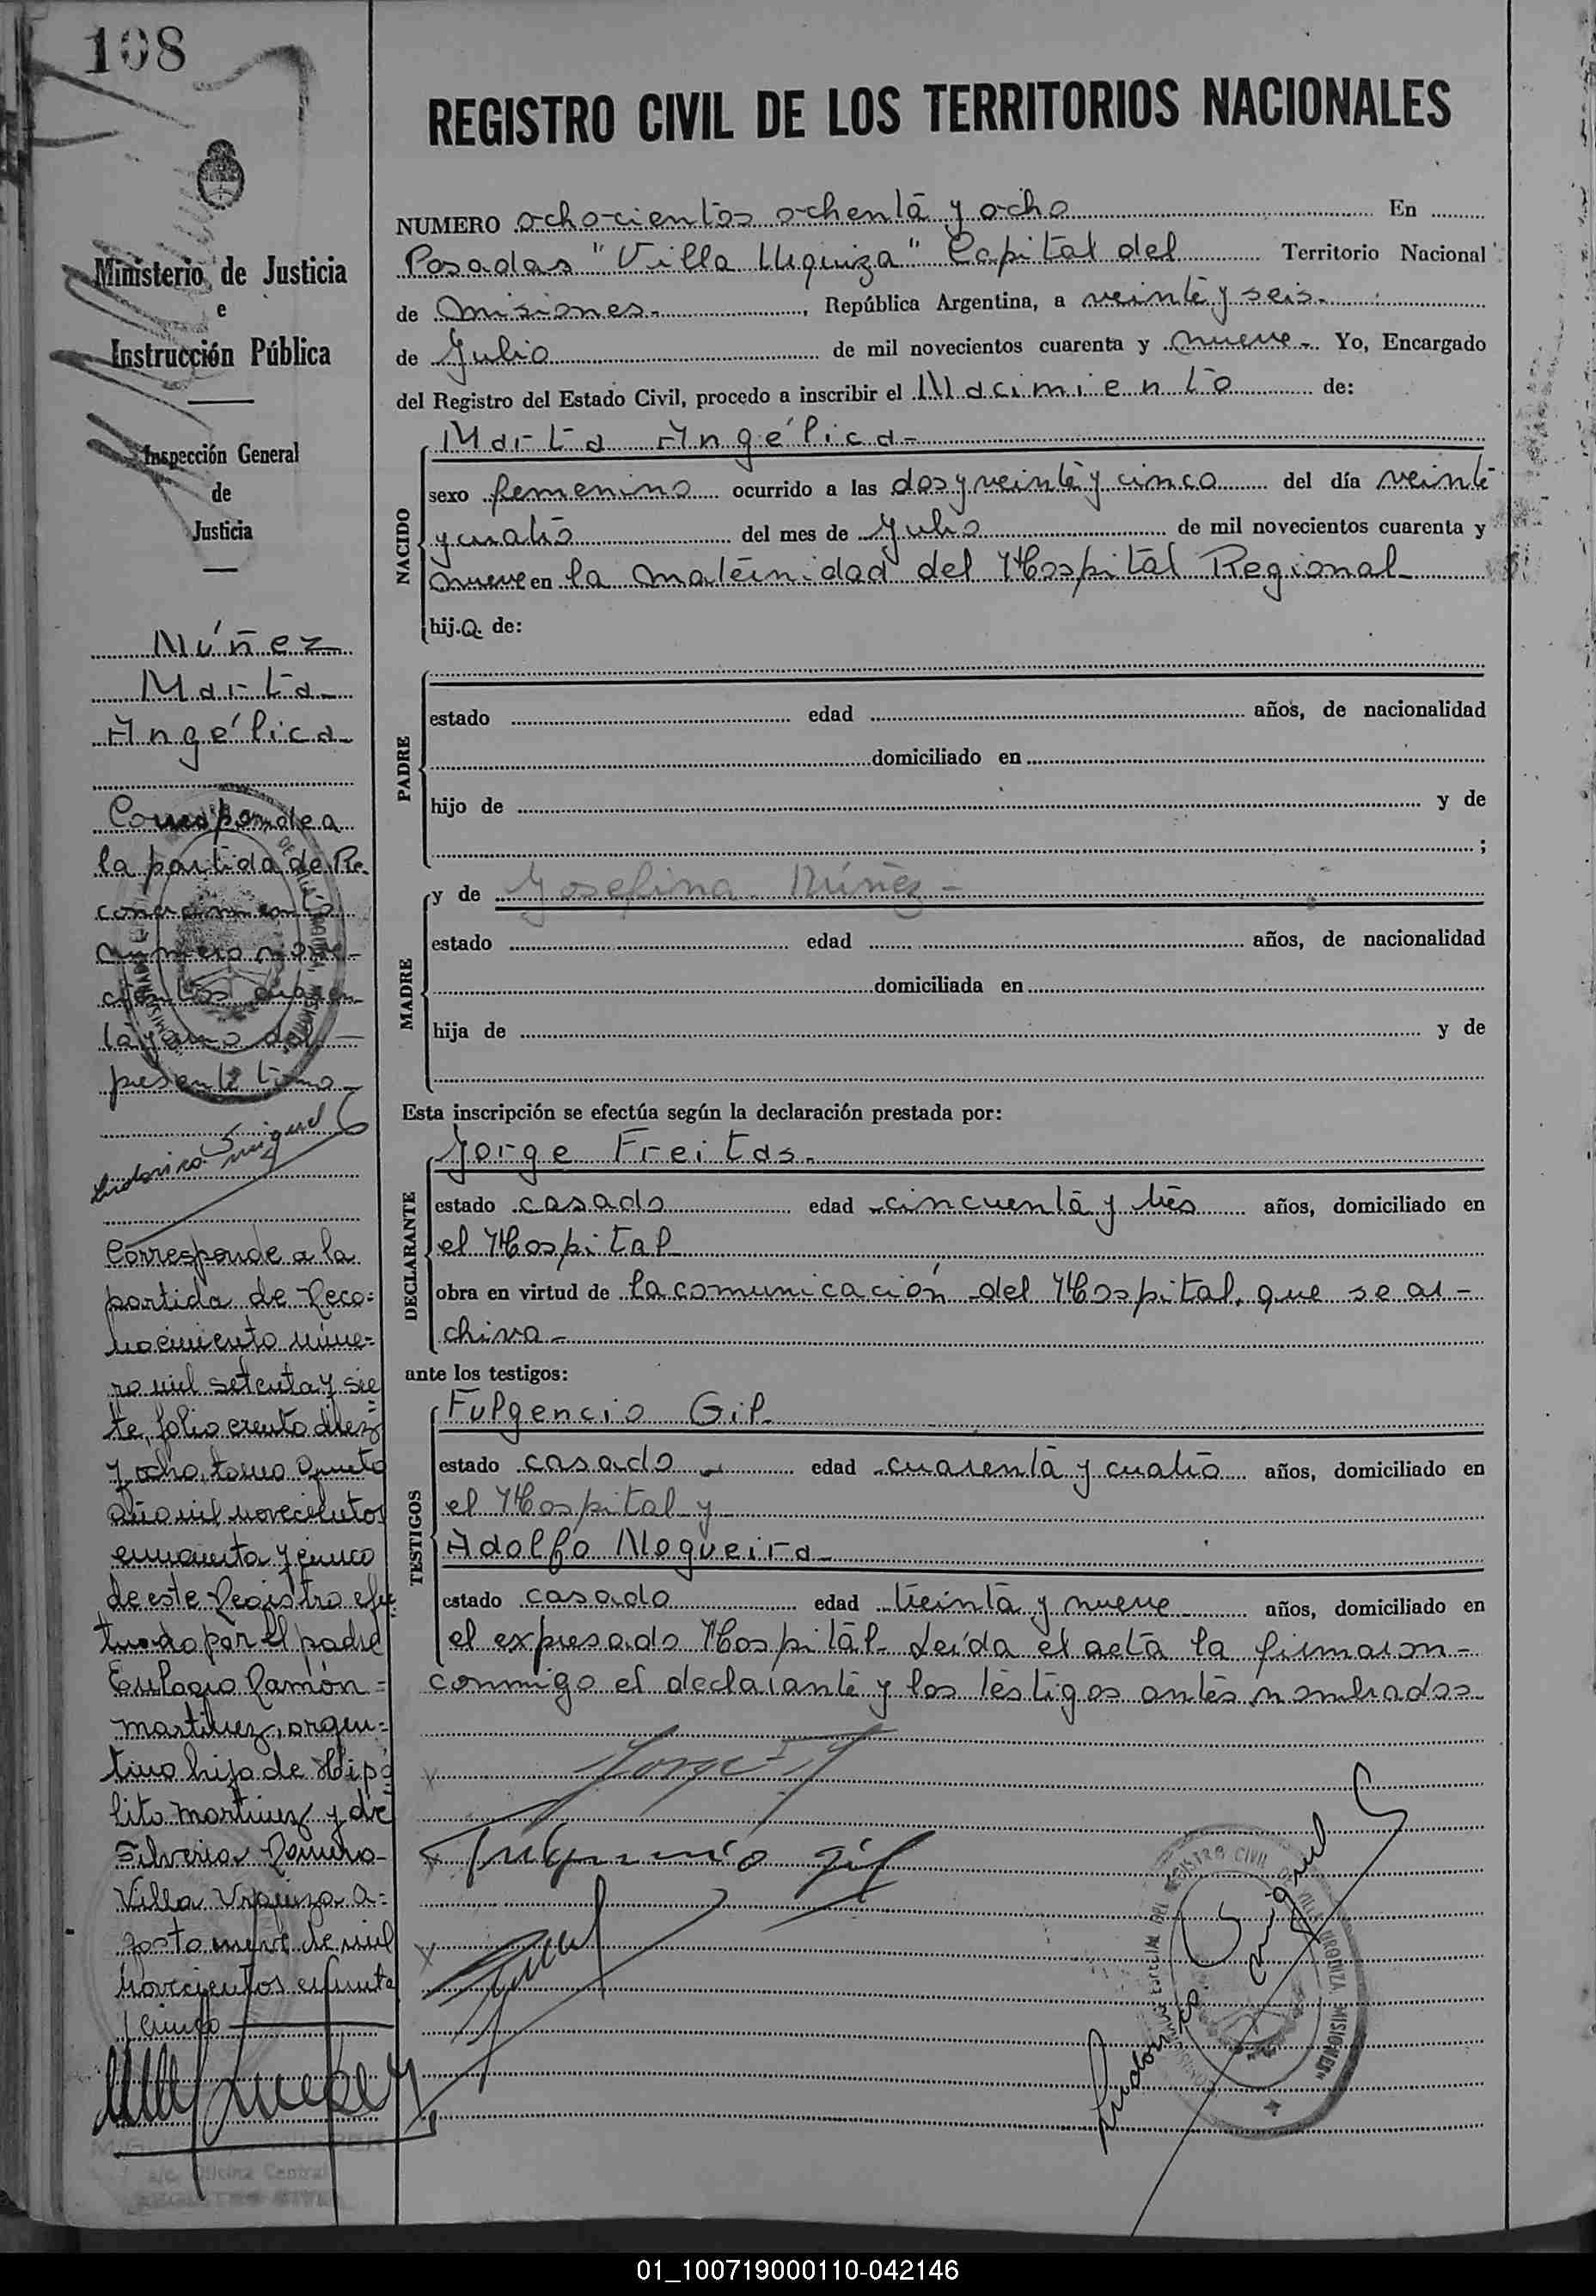 108
REGISTRO CIVIL DE LOS TERRITORIOS NACIONALES
Ministerio de Justicia
e
Instrucción Pública
Inspección General
de
Justicia
NUMERO ochocientos ochenta y ocho En
Posadas "Villa Urquiza" Capital del Territorio Nacional
de Misiones., República Argentina, a veinte y seis.
de Julio de mil novecientos cuarenta y nueve - Yo, Encargado
del Registro del Estado Civil, procedo a inscribir el Nacimiento de:
NACIDO
Marta Angélica -
sexo femenino ocurrido a las dos y veinte y cinco del día veinte
y cuatro del mes de Julio de mil novecientos cuarenta y
nueve en la maternidad del Hospital Regional
hij.a. de:
PADRE
estado edad años, de nacionalidad
domiciliado en
hijo de y de
;
MADRE
y de Josefina Núñez -
estado edad años, de nacionalidad
domiciliada en
hija de y de
Esta inscripción se efectúa según la declaración prestada por:
DECLARANTE
Jorge Freitas.
estado casado edad cincuenta y tres años, domiciliado en
el Hospital
obra en virtud de la comunicación del Hospital, que se ar -
chiva -
ante los testigos:
TESTIGOS
Fulgencio Gil
estado casado edad cuarenta y cuatro años, domiciliado en
el Hospital y
Adolfo Nogueira
estado casado edad treinta y nueve años, domiciliado en
el expresado Hospital - Leída el acta la firmaron -
conmigo el declarante y los testigos antes nombrados
Jorge F
Fulgencio Gil
Ludovico S Miguel
REGISTRO CIVIL VILLA URQUIZA MISIONES
Núñez
Marta
Angélica
Corresponde a
la partida de Re
conocimiento
número nove-
cientos
del
presente tomo
Ludovico S Miguel
Corresponde a la
partida de Reco=
nocimiento núme=
ro mil setenta y sie
te, folio ciento diez
y ocho, tomo quinto
año mil novecientos
cincuenta y cinco
de este Registro efec
tuado por el padre
Eulogio Ramón =
Martinez, argen=
tino hijo de Hipó
lito Martinez y de
Silveria Romero
Villa Urquiza a=
gosto nueve de mil
novecientos cincuenta
y cinco
a/c. Oficina Central
REGISTRO CIVIL
01_100719000110-042146